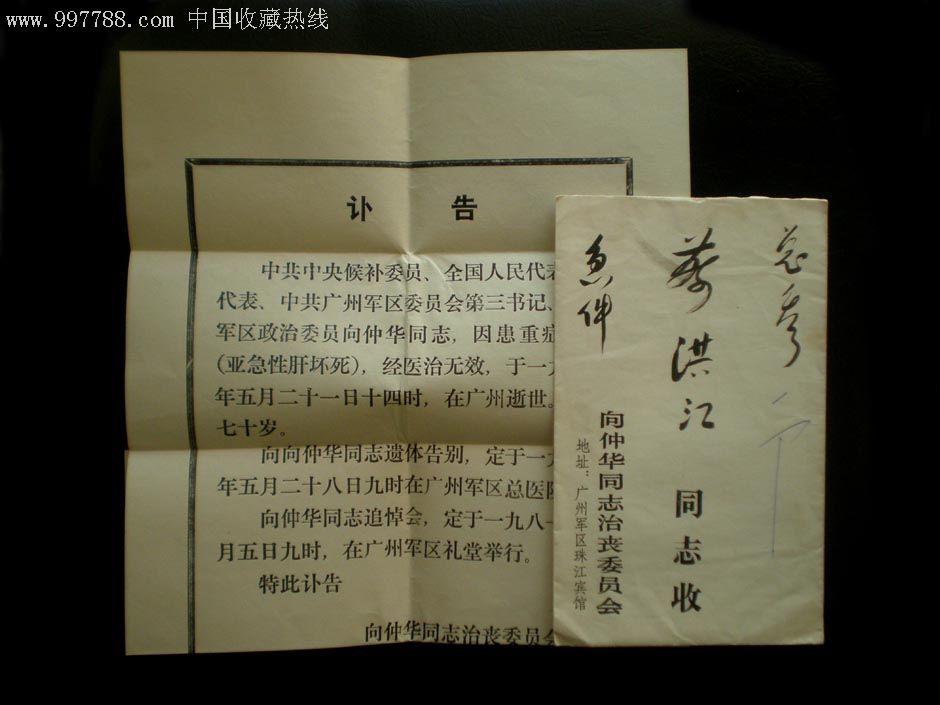 www.997788.com 中国收藏热线
讣 告
中共中央候补委员、全国人民代表
代表、中共广州军区委员会第三书记、
军区政治委员向仲华同志，因患重症
(亚急性肝坏死)，经医治无效，于一九
年五月二十一日十四时，在广州逝世。
七十岁。
向向仲华同志遗体告别，定于一九
年五月二十八日九时在广州军区总医院
向仲华同志追悼会，定于一九八一
月五日九时，在广州军区礼堂举行。
特此讣告
向仲华同志治丧委员会
总参
洪江 同志收
急件
向仲华同志治丧委员会
地址：广州军区珠江宾馆